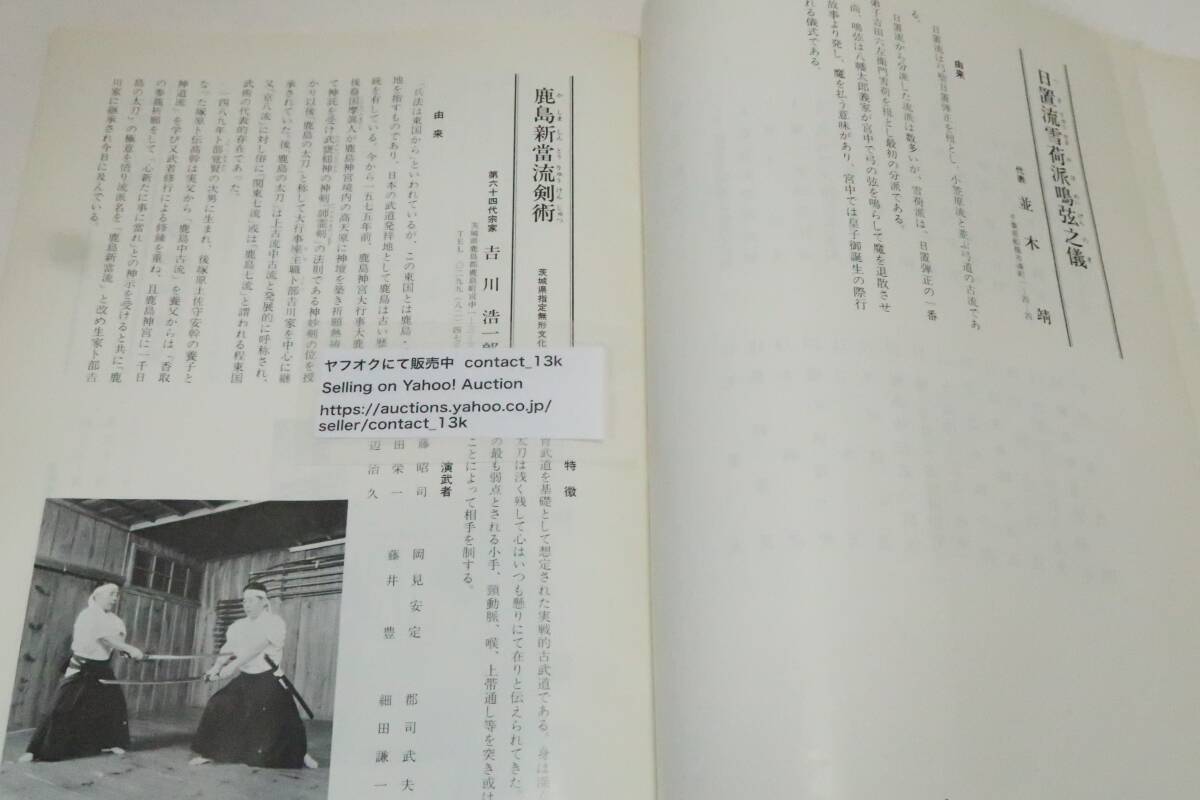 日置流雪荷派鳴弦之儀
へきりゅうせっかはめいげんのぎ
代表 並木 靖
由来
日置流は弓聖日置弾正を祖とし、小笠原流と並ぶ弓道の古流であ
る。
日置流から分派した流派は数多いが、雪荷派は、日置弾正の一番
弟子吉田六左衛門雪荷を祖とし最初の分派である。
尚、鳴弦は八幡太郎義家が宮中で弓の弦を鳴らして魔を退散させ
故事より発し、魔を払う意味があり、宮中では皇子御誕生の際行
れる儀式である。
茨城県指定無形文化
鹿島新當流剣術
かしましんとうりゅうけんじゅつ
第六十四代宗家 吉川 浩一郎
茨城県鹿島郡鹿島町宮中一
TEL 〇二九九(八二)四七
由来
「兵法は東国から」といわれているが、この東国とは鹿島・
地を指すものであり、日本の武道発祥地として鹿島は古い歴
統を有している。今から一五七五年前、鹿島神宮大行事大鹿
後裔国摩真人が鹿島神宮境内の高天原に神壇を築き祈願熱禱
て神託を受け武甕槌神の神剣「師霊剣」の法則である神妙剣の位を授
かり以後「鹿島の太刀」と称して大行事座主職卜部吉川家を中心に継
承されていた。後、鹿島の太刀」は上古流中古流と発展的に呼称され、
又「京八流」に対し俗に「関東七流」或は「鹿島七流」と謂われる程東国
武術の代表的存在であった。
一四八九年卜部覚賢の次男に生まれ、後塚原土佐守安幹の養子と
なった塚原卜伝高幹は実父から「鹿島中古流」を養父からは「香取
神道流」を学び又武者修行による修練を重ね、且鹿島神宮に一千日
の参籠祈願をして「心新たに事に当れ」との神示を受けると共に「鹿
島の太刀」の極意を悟り流派名を「鹿島新當流」と改め生家卜部吉
川家に継承され今日に及んでいる。
ヤフオクにて販売中 contact_13k
Selling on Yahoo! Auction
https://auctions.yahoo.co.jp/
seller/contact_13k
特徴
武道を基礎として想定された実戦的古武道である。身は深
太刀は浅く残して心はいつも懸りにて在りと伝えられてきた。
の最も弱点とされる小手、頸動脈、喉、上帯通し等を突き或は
ことによって相手を制する。
演武者
藤 昭司 岡見安定 郡司武夫
田栄一 藤井 豊 細田謙一
辺治久